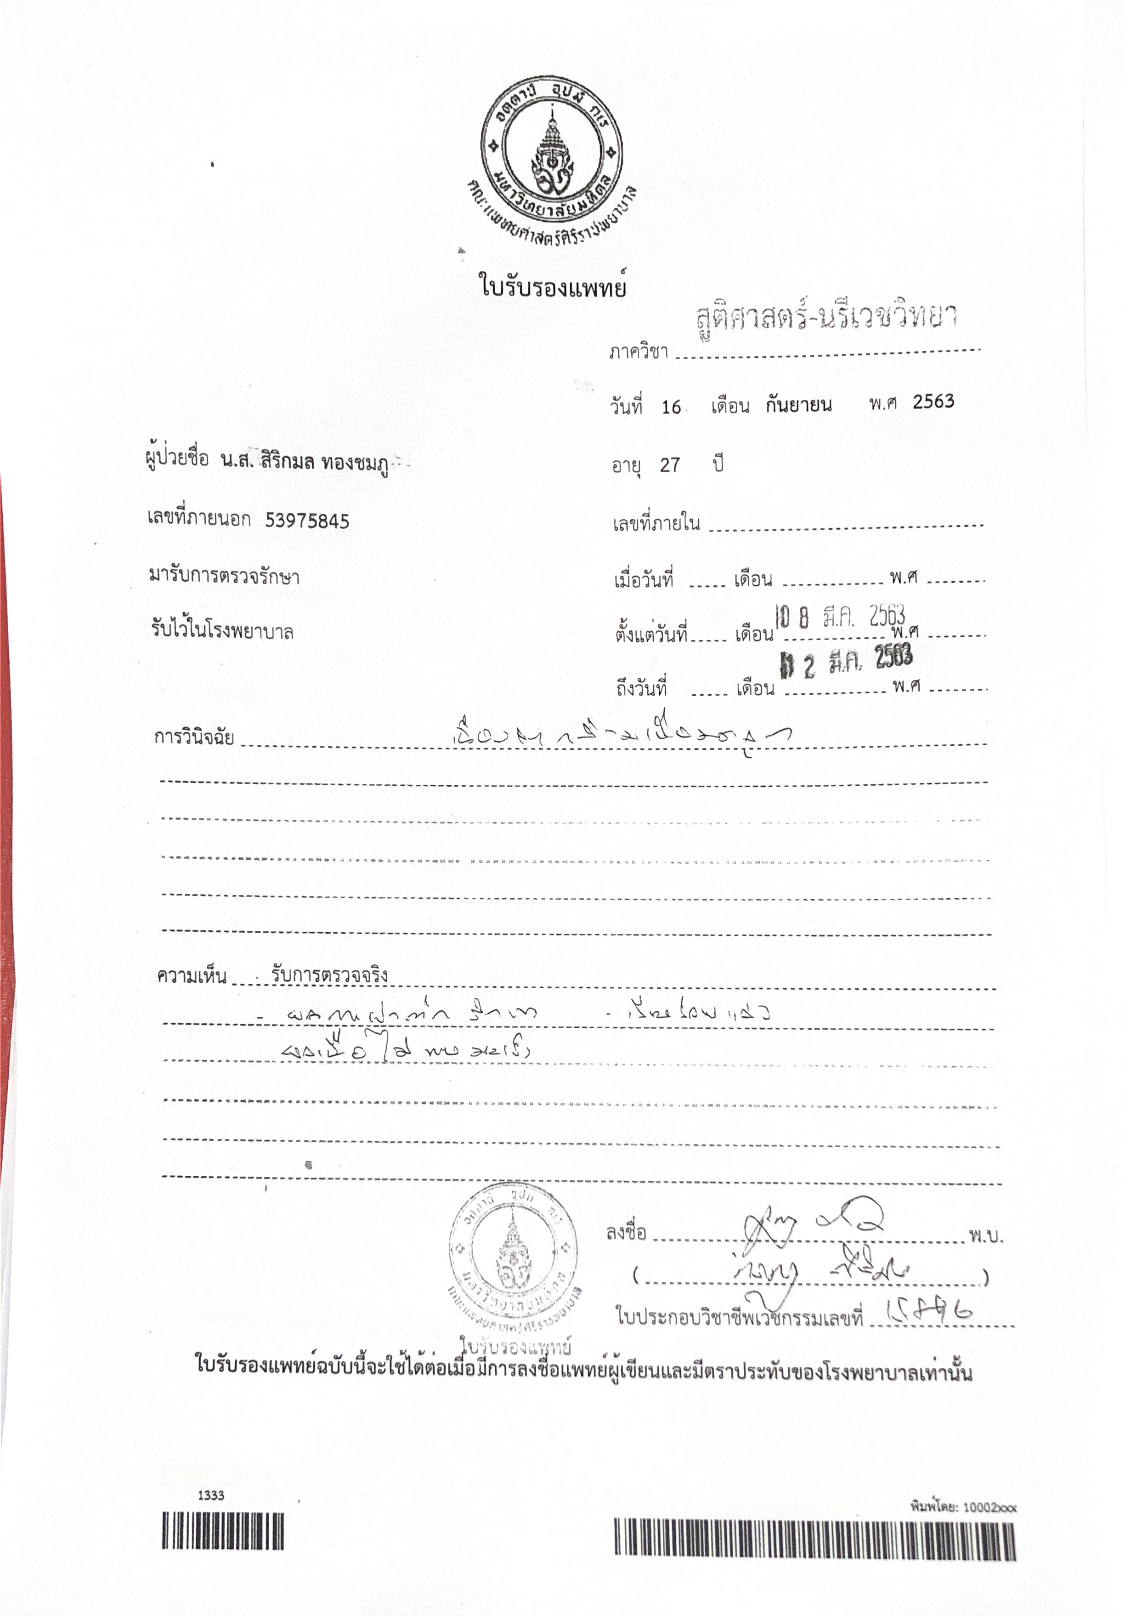 อตฺตานํ อุปมํ กเร
มหาวิทยาลัยมหิดล
คณะแพทยศาสตร์ศิริราชพยาบาล
ใบรับรองแพทย์
สูติศาสตร์-นรีเวชวิทยา
ภาควิชา
วันที่ 16 เดือน กันยายน พ.ศ 2563
ผู้ป่วยชื่อ น.ส. สิริกมล ทองชมภู อายุ 27 ปี
เลขที่ภายนอก 53975845 เลขที่ภายใน
มารับการตรวจรักษา เมื่อวันที่ เดือน พ.ศ
รับไว้ในโรงพยาบาล ตั้งแต่วันที่ เดือน 08 มี.ค. 2563 พ.ศ
ถึงวันที่ เดือน 12 มี.ค. 2563 พ.ศ
การวินิจฉัย
ความเห็น - รับการตรวจจริง
- เรียบร้อยแล้ว
ผลเนื้อไม่พบมะเร็ง
ลงชื่อ พ.บ.
( )
ใบประกอบวิชาชีพเวชกรรมเลขที่
มหาวิทยาลัยมหิดล
คณะแพทยศาสตร์ศิริราชพยาบาล
ใบรับรองแพทย์
ใบรับรองแพทย์ฉบับนี้จะใช้ได้ต่อเมื่อมีการลงชื่อแพทย์ผู้เขียนและมีตราประทับของโรงพยาบาลเท่านั้น
1333
พิมพ์โดย: 10002xxx